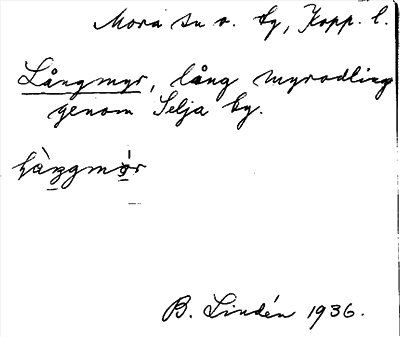 Mora sn o. tg, Kopp. l.
Långmyr, lång myrodling
genom Selja by.
B. Lindén 1936.